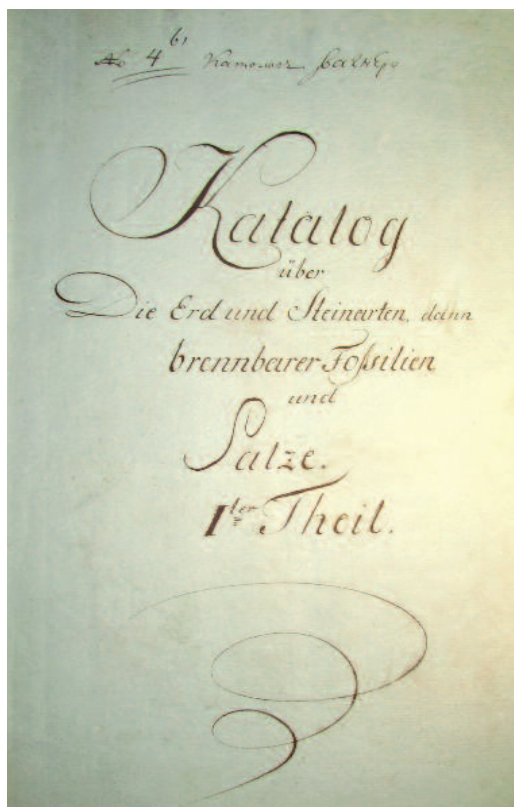 4
Katalog
über
Die Erd und Steinarten, dann
brennbarer Foßilien
und
Salze.
Iter Theil.